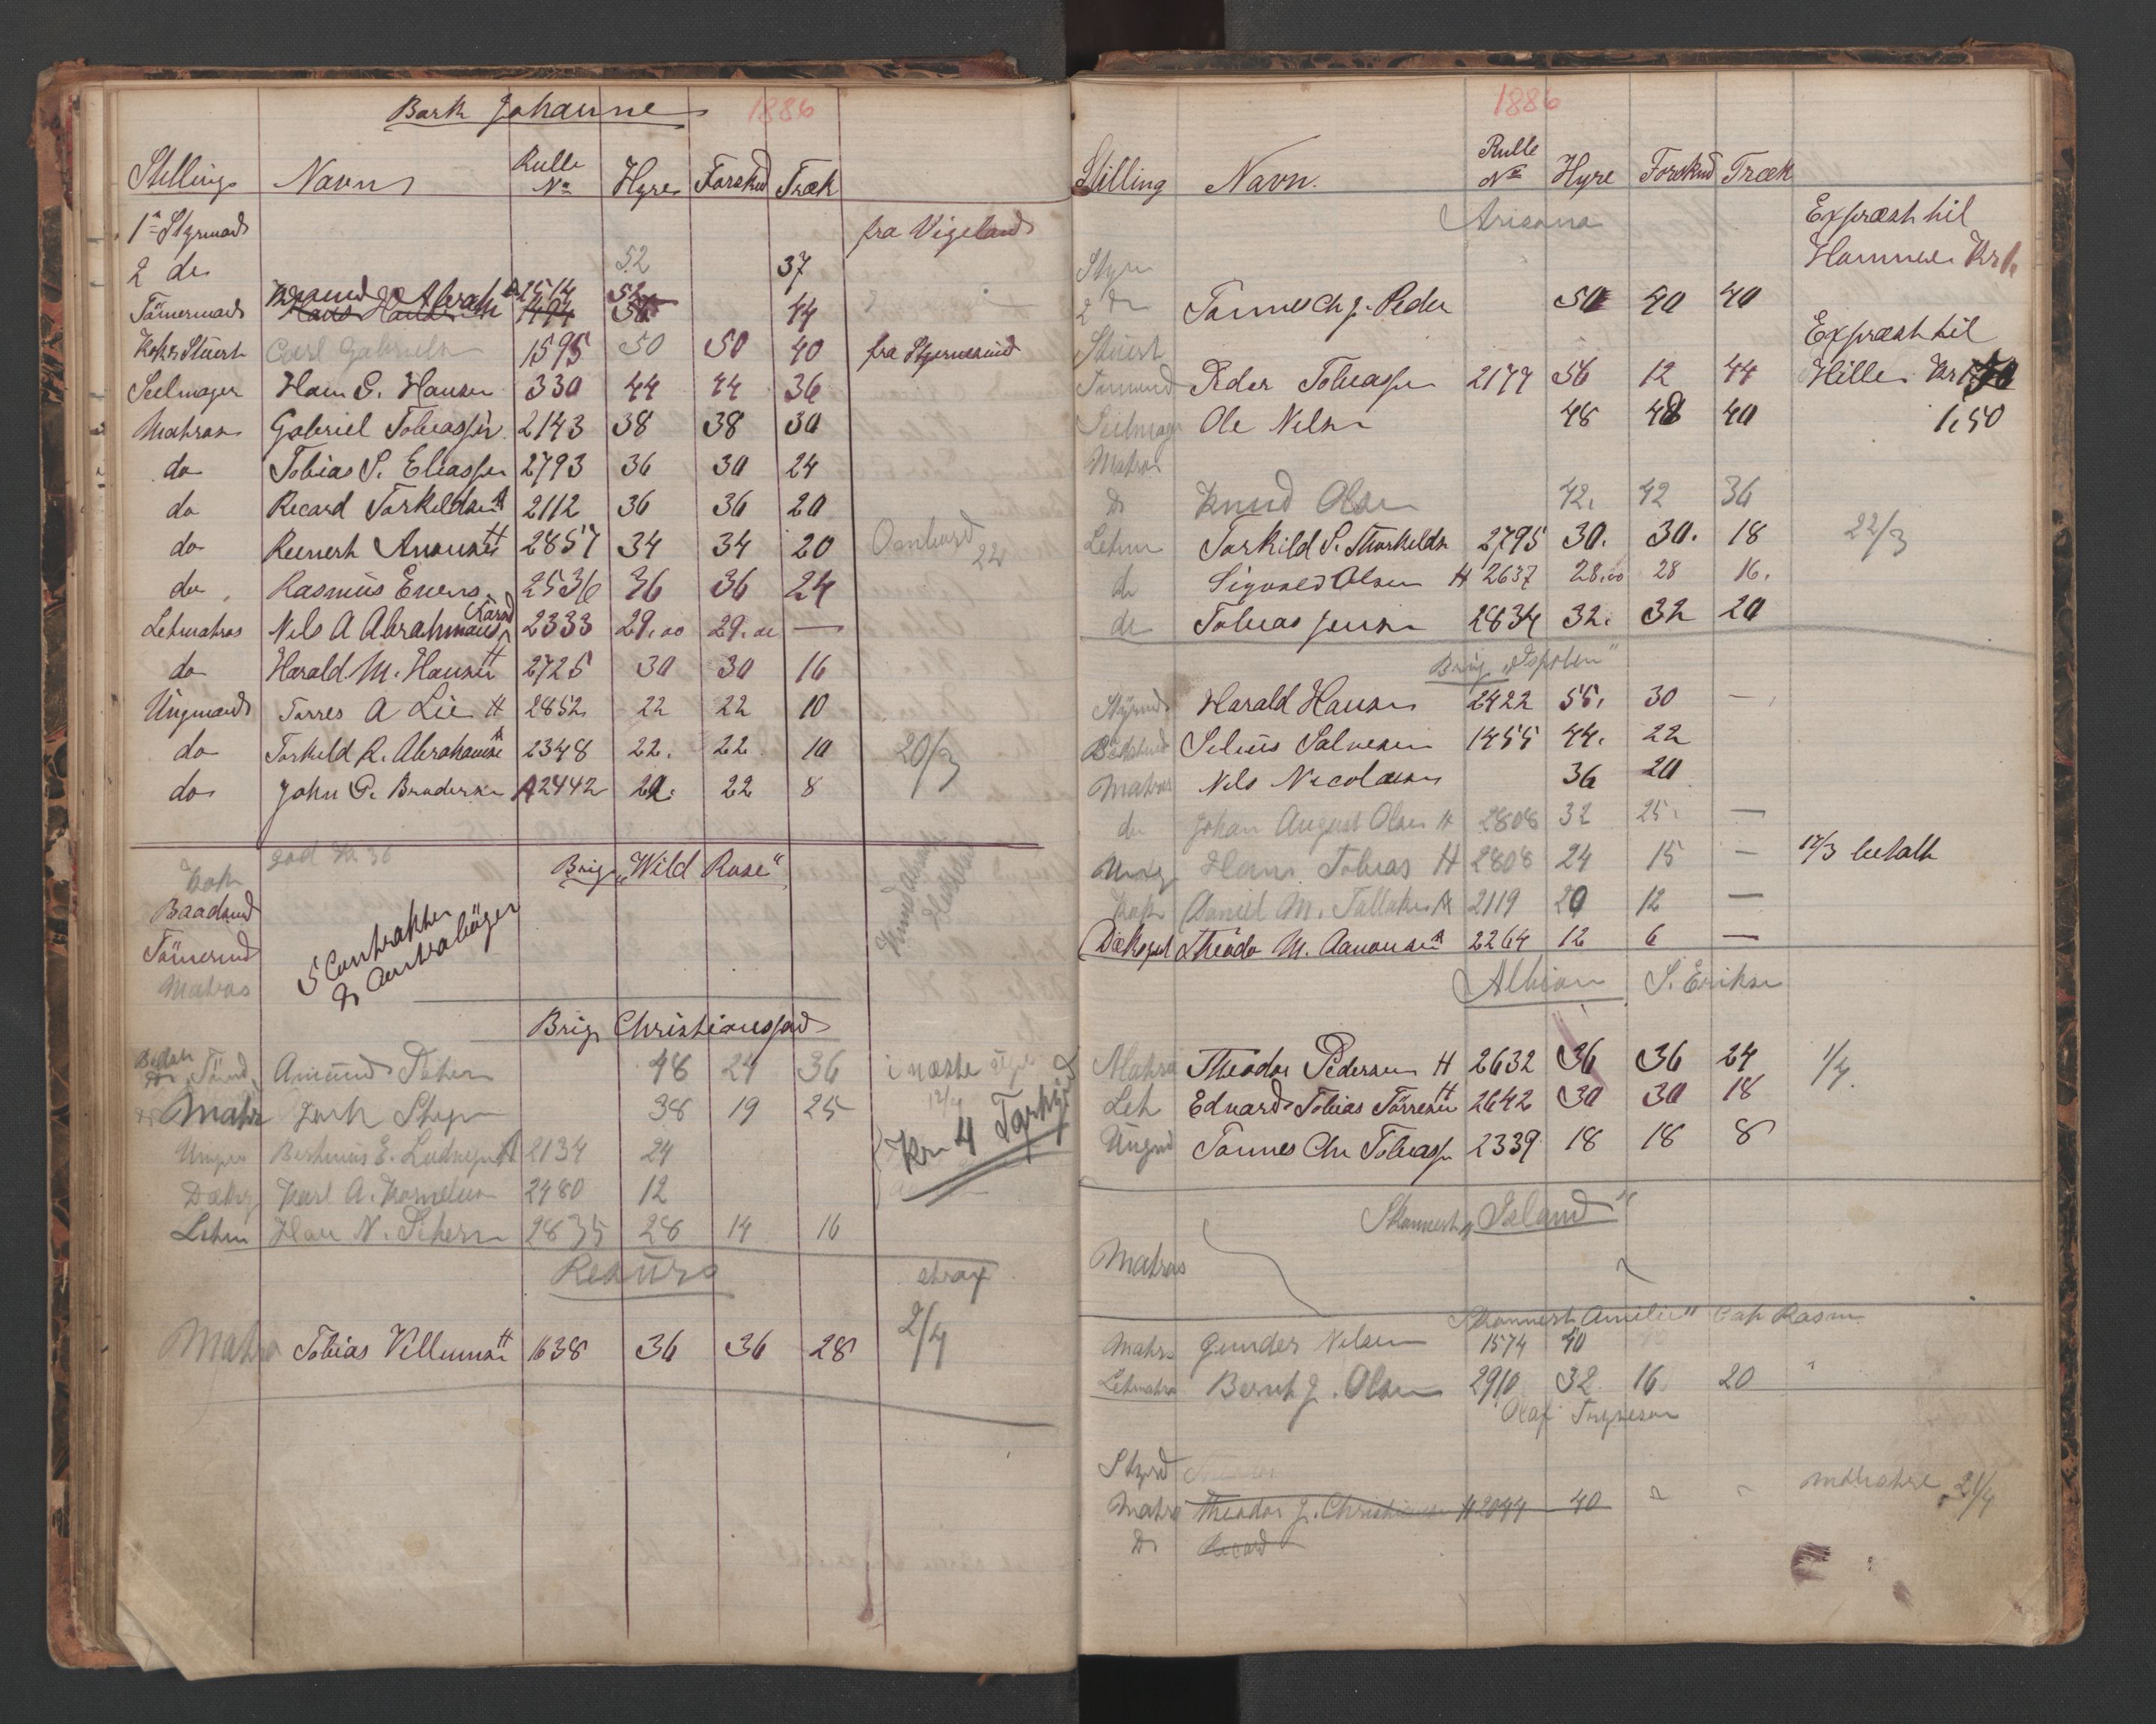 Bark Johanne 1886
Stilling Navn Rulle No Hyre Forskud Træk
1ste Styrmand fra Vigeland
2 do 52 37
Tömermand Abrah 2514 52 44
Kok & Stuert Carl Gabriels 1595 50 50 40 fra Stjernesund
Seilmager Hans G. Hansen 330 44 44 36
Matros Gabriel Tobiassen 2143 38 38 30
do Tobias S. Eliassen 2793 36 30 24
do Recard Torkeldsen A 2112 36 36 20
do Reinert Anensen H 2857 34 34 20 Ombord 22
do Rasmus Evens 2536 36 36 24
Letmatros Nils A Abrahmans 2333 29.00 29.00 —
do Harald M. Hansen H 2725 30 30 16
Ungmand Torres A Lie H 2852 22 22 10
do Torkeld R. Abrahamse A 2348 22. 22 10 20/3
do John G. Brudersen A 2442 22. 22 8
god Kr 36
Brig „Wild Rose“
Kok
Baadsmd
Tömermd
Matros
5 Contrakter
2 Aufrabøger
Brig Christiansfad
Amund Peters 48 24 36 i næste
Matr Jack Stop 38 19 25 12/4
Ungm Bertinius E. Ludvigs A 2134 24 Kr 4
Dæksg Karl A. Kornelius 2480 12
Letm Hans N. Sivers 2835 28 14 16
Returs strax
Matro Tobias Villumsen H 1638 36 36 28 2/4
1886
Stilling Navn. Rulle No Hyre Forskud Træk
Aricana
Exprest til
Hammer Kr 1.
Styr
2 do Tonnes Ch J. Peder 50 40 40
Stuert Exprest til
Tömmermd Peder Tobiassen 2177 56 12 44 Hille Kr
Seilmager Ole Nilsen 48 48 40 1,50
Matros
Do Knud Olsen 42. 42 36
Letm Torkild S. Thorkelds 2795 30. 30. 18 22/3
do Sigvald Olsen H 2637 28.00 28 16.
do Tobias Jensen 2834 32. 32 20
Brig
Styrmd Harald Hansen 2422 55. 30 —
Baadsmd Selius Salvesen 1455 44. 22
Matros Nils Nicolaisen 36 20
do Johan August Olsen H 2808 32 25 —
Ungm Hans Tobias H 2808 24 15 — 17/3 betalt
Kok Daniel M. Tallaks A 2119 20 12 —
Dæksgut Theodo M. Aanonsen A 2264 12 6 —
Albion S. Eriksen
Matro Theodor Pedersen H 2632 36 36 24 1/4.
Let Edvard Tobias Törresen H 2642 30 30 18
Ungmd Tonnes Chr Tobiassen 2339 18 18 8
Skonnert „Island“
Matros
Skonnert Amelie“ Cap Rasm
Matrs Gunder Nilsen 1574 40
Letmatro Bernt J. Olsen 2910 32 16 20
Olaf Torgresen
Styrd
Matro Theodor J. Christiansen H 2044 40 21/4
Do Recard